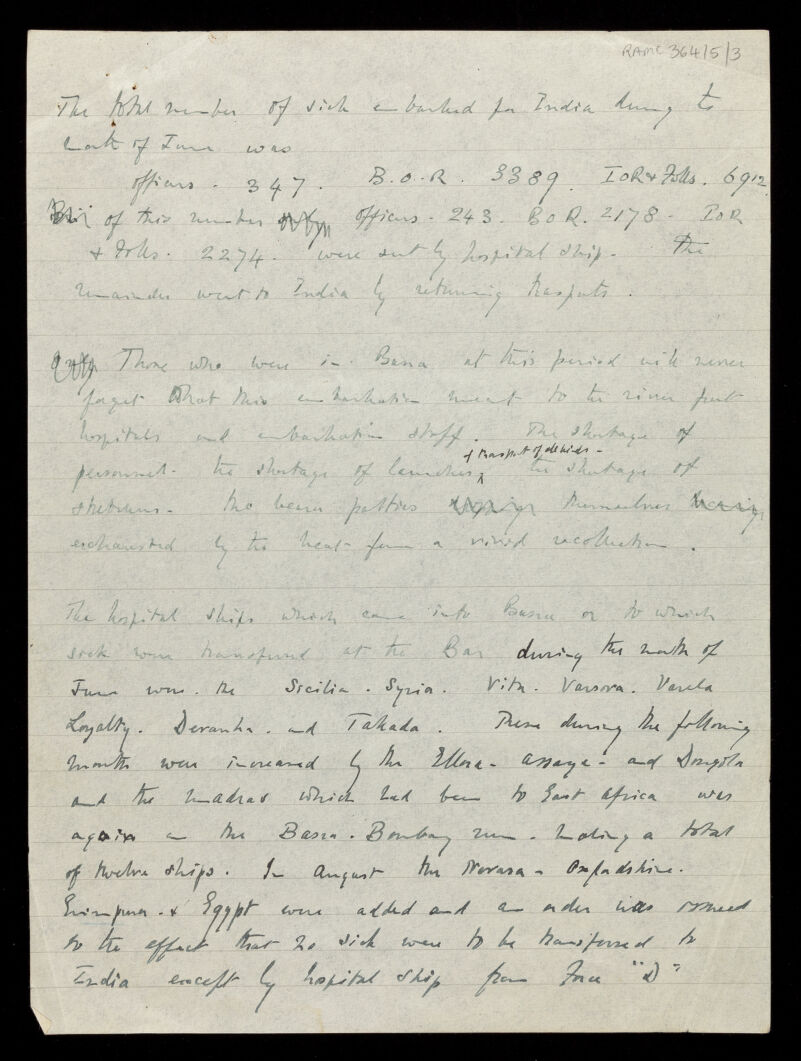 RAMC 364/5/3
The total number of sick embarked for India during the
month of June was
officers - 347. B.O.R. 3389. IOR & Folls. 6912.
of this number officers - 243. BOR. 2178 - IOR
& Folls. 2274. were sent by hospital ship. The
remainder went to India by returning transports.
Those who were in Basra at this period will never
forget what this embarkation meant to the river front
hospitals and embarkation staff. The shortage of
of transport of all kinds -
personnel - the shortage of launches, the shortage of
stretchers - the bearer parties themselves
exhausted by the heat - form a vivid recollection.
The hospital ships which came into Basra or to which
sick were transferred at the Bar during the month of
June were. the Sicilia. Syria. Vita. Varsova. Varela
Loyalty. Devanha. and Takada. These during the following
month were increased by the Ellora - Assaye - and Dongola
and the Madras which had been to East Africa was
again on the Basra - Bombay run - making a total
of twelve ships. In August the Nevasa - Oxfordshire.
Erinpura - & Egypt were added and an order was issued
to the effect that no sick were to be transferred to
India except by hospital ship from Force "D"